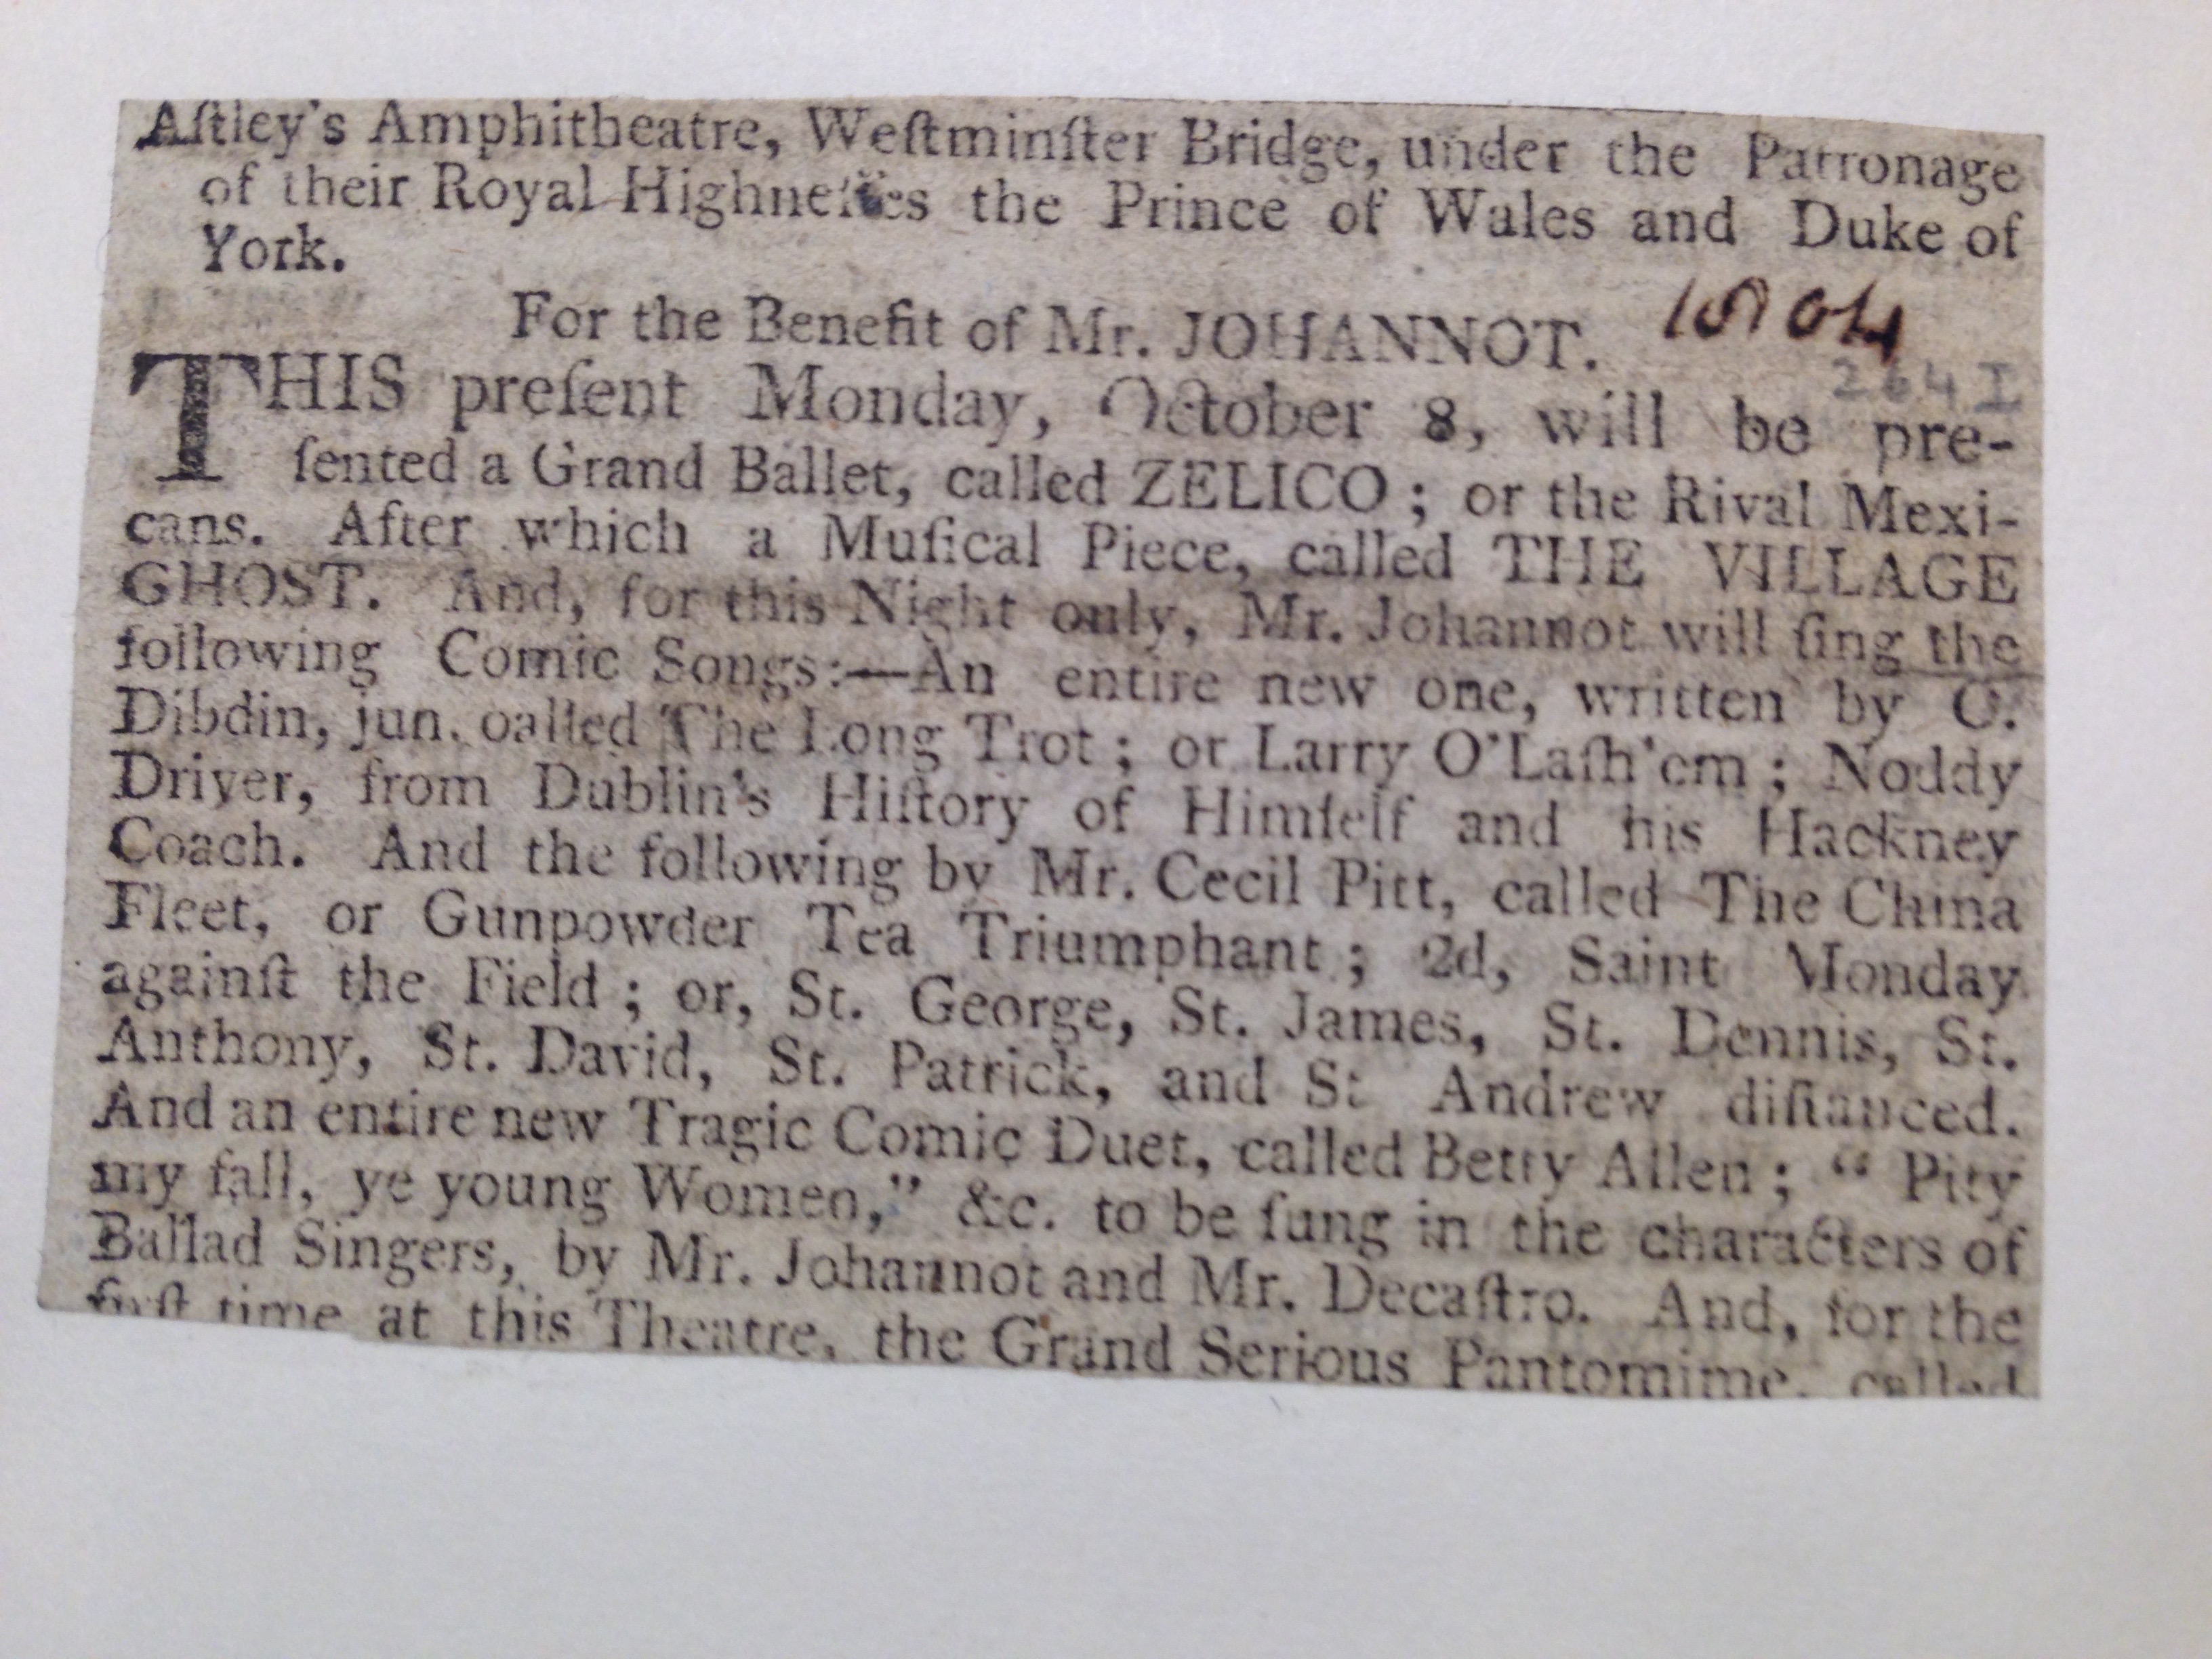 Aſtley's Amphitheatre, Weſtminſter Bridge, under the Patronage
of their Royal Highneſſes the Prince of Wales and Duke of
York.
For the Benefit of Mr. JOHANNOT. 1804
264 I
THIS preſent Monday, October 8, will be pre-
ſented a Grand Ballet, called ZELICO; or the Rival Mexi-
cans. After which a Muſical Piece, called THE VILLAGE
GHOST. And, for this Night only, Mr. Johannot will ſing the
following Comic Songs:—An entire new one, written by C.
Dibdin, jun. oalled The Long Trot; or Larry O'Laſh'em; Noddy
Driver, from Dublin's Hiſtory of Himſelf and his Hackney
Coach. And the following by Mr. Cecil Pitt, called The China
Fleet, or Gunpowder Tea Triumphant; 2d, Saint Monday
againſt the Field; or, St. George, St. James, St. Dennis, St.
Anthony, St. David, St. Patrick, and St Andrew diſtanced.
And an entire new Tragic Comic Duet, called Betty Allen; “ Pity
my fall, ye young Women,” &c. to be ſung in the characters of
Ballad Singers, by Mr. Johannot and Mr. Decaſtro. And, for the
firſt time at this Theatre, the Grand Serious Pantomime, called